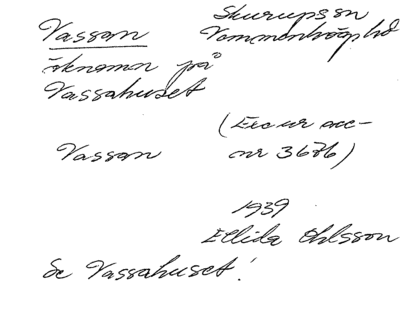 Vassan
Skurups sn
Vemmenhögs hd
öknamn på
Vassahuset
(Exc ur acc-
Vassan nr 3686)
1939
Ellida Ohlsson
Se Vassahuset!